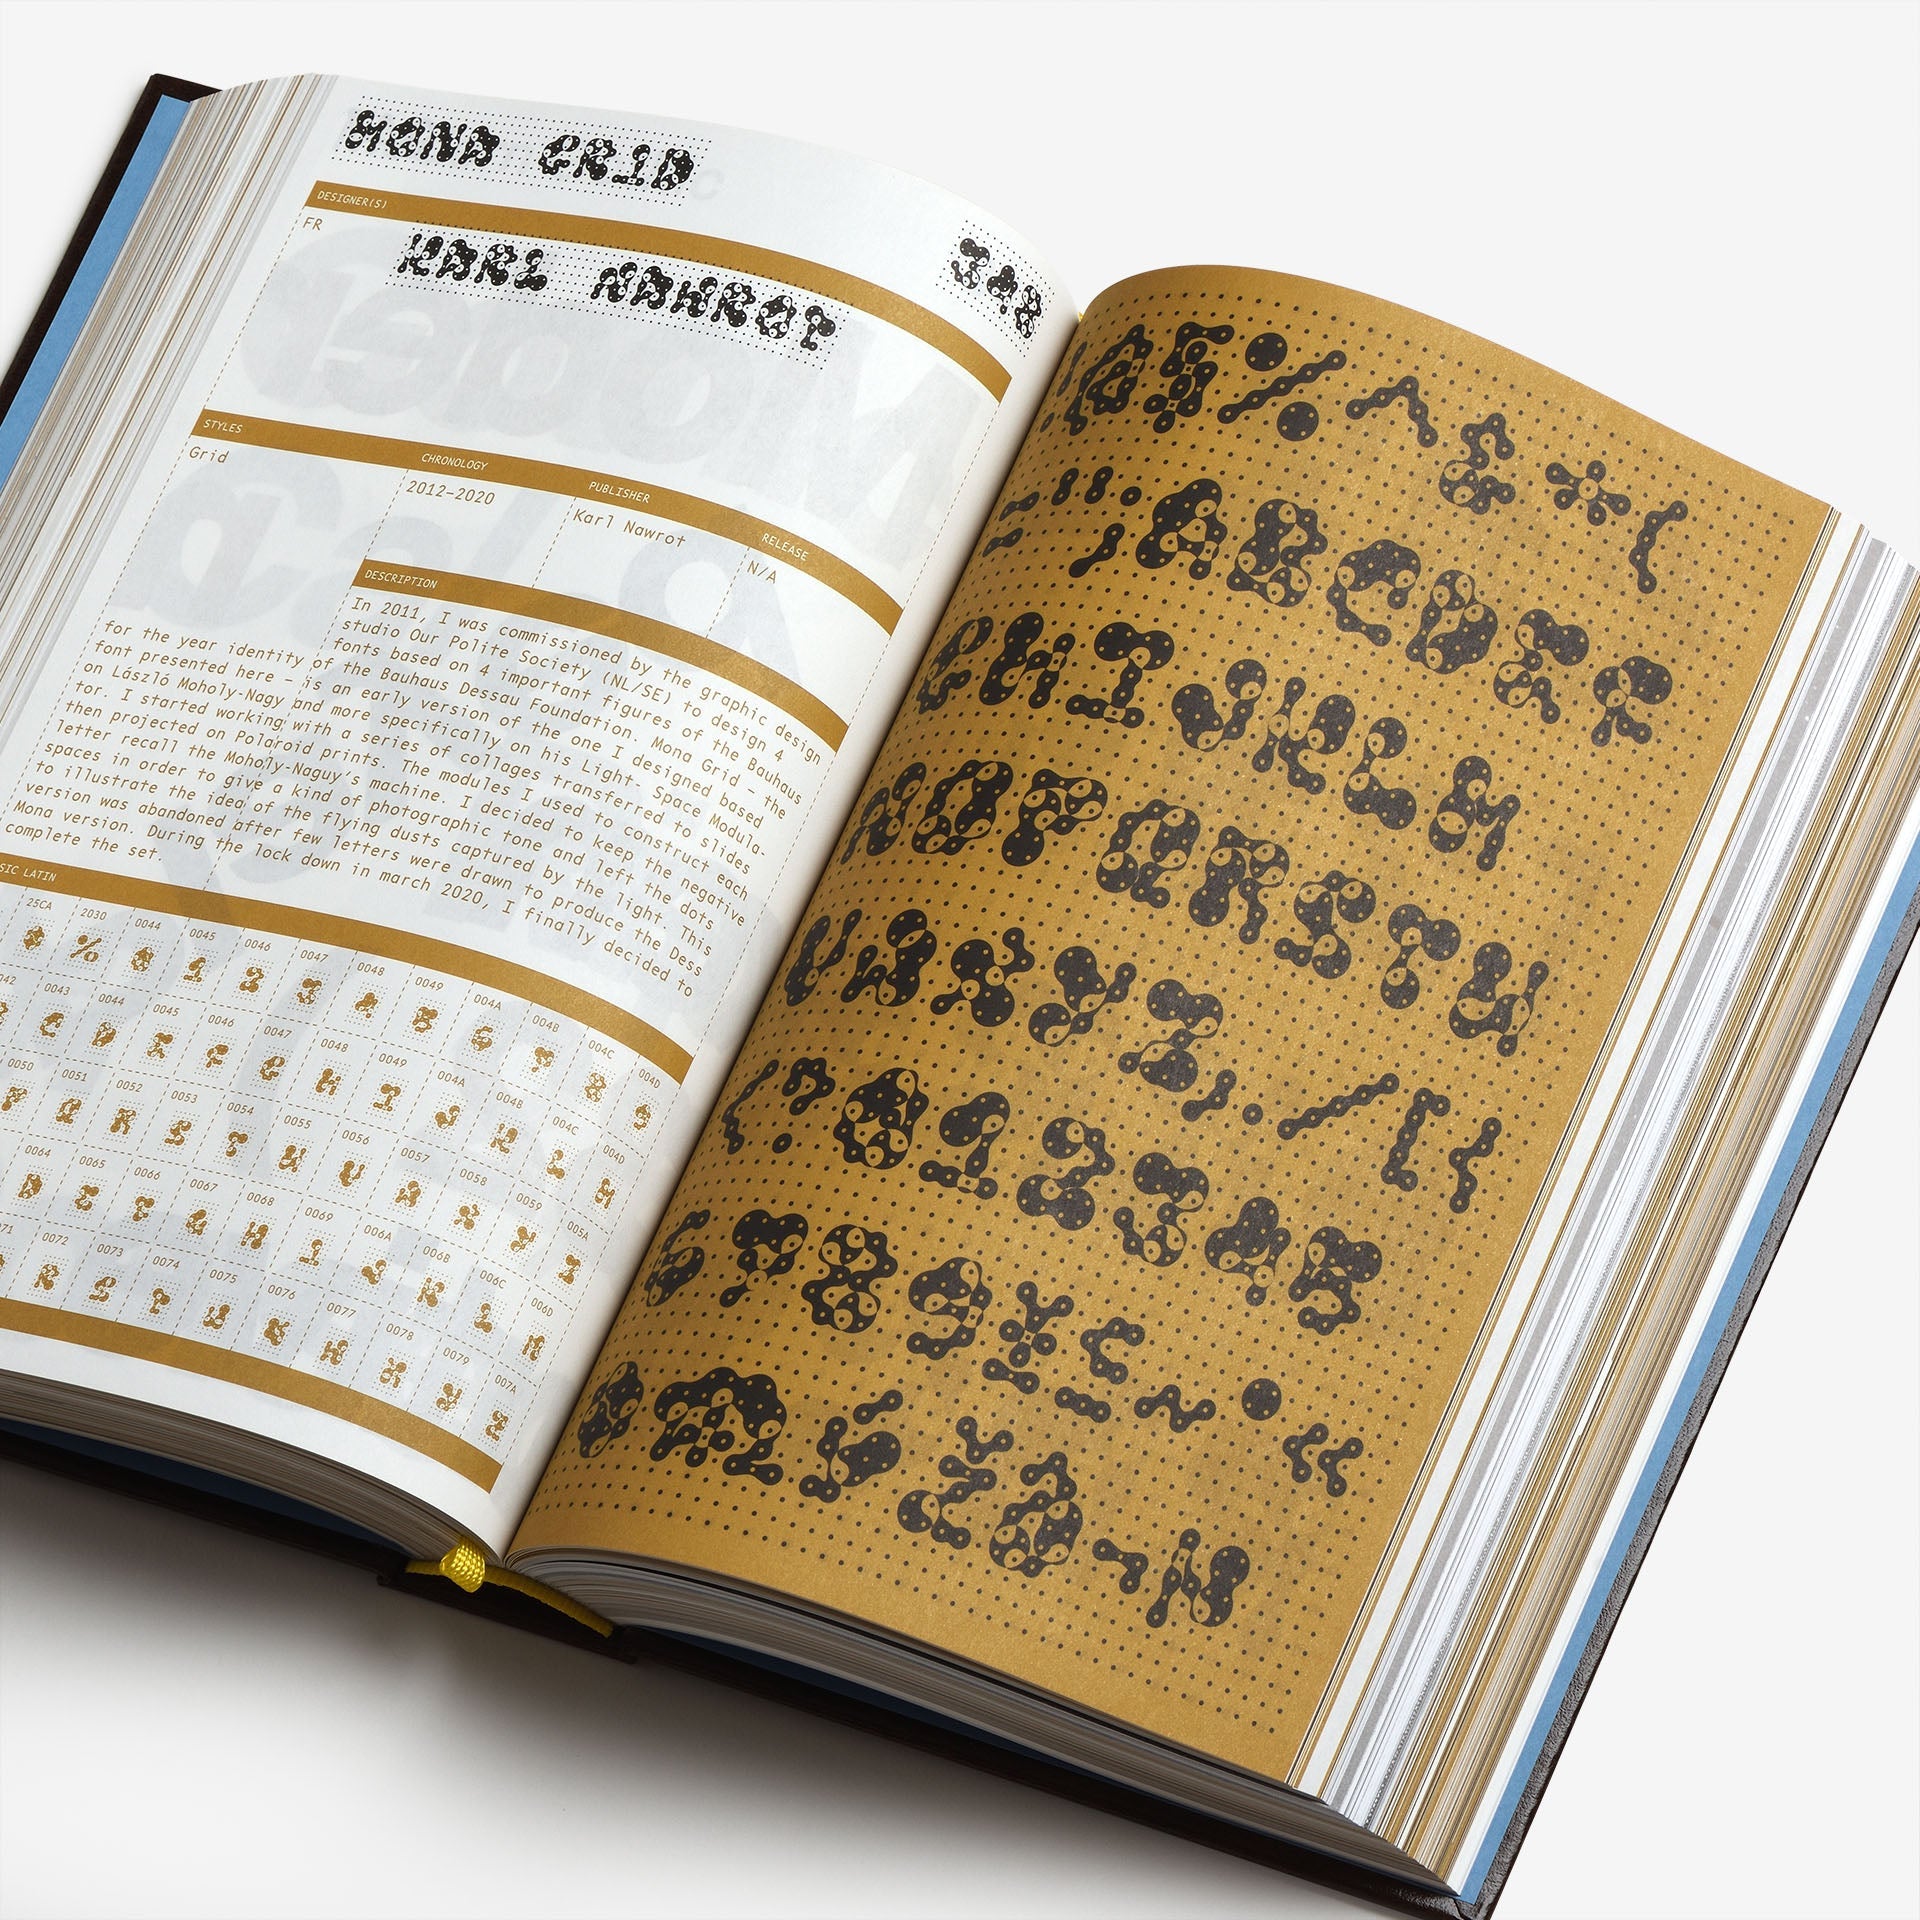 MONA GRID
DESIGNER(S)
FR
KARL NAWROT
348
STYLES
CHRONOLOGY
PUBLISHER
RELEASE
Grid
2012–2020
Karl Nawrot
N/A
DESCRIPTION
In 2011, I was commissioned by the graphic design
studio Our Polite Society (NL/SE) to design 4
fonts based on 4 important figures of the Bauhaus
for the year identity of the Bauhaus Dessau Foundation. Mona Grid – the
font presented here – is an early version of the one I designed based
on László Moholy-Nagy and more specifically on his Light Space Modula-
tor. I started working with a series of collages transferred to slides
then projected on Polaroid prints. The modules I used to construct each
letter recall the Moholy-Naguy's machine. I decided to keep the negative
spaces in order to give a kind of photographic tone and left the dots
to illustrate the idea of the flying dusts captured by the light. This
version was abandoned after few letters were drawn to produce the Dess
Mona version. During the lock down in march 2020, I finally decided to
complete the set.
SIC LATIN
25CA 2030 0044 0045 0046 0047 0048 0049 004A 004B 004C 004D
% 0 1 2 3 4 5 6 7 8 9
42 0043 0044 0045 0046 0047 0048 0049 004A 004B 004C 004D
C D E F G H I J K L M
0050 0051 0052 0053 0054 0055 0056 0057 0058 0059 005A
P Q R S T U V W X Y Z
0064 0065 0066 0067 0068 0069 006A 006B 006C 006D
D E F G H I J K L M
71 0072 0073 0074 0075 0076 0077 0078 0079 007A
R S T U V W X Y Z
@$%^&*(
=":;ABCDEF
GHIJKLM
NOPQRSTU
VWXYZ,./[{
(?012345
6789¥